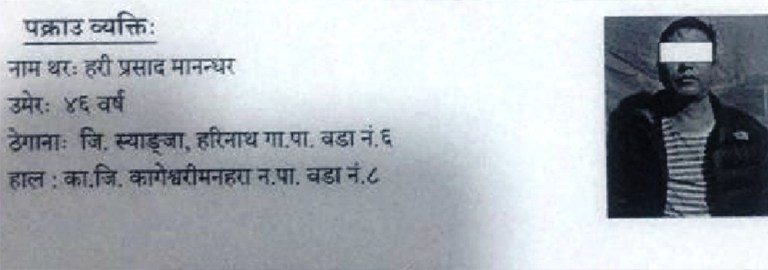 पक्राउ व्यक्ति:
नाम थरः हरी प्रसाद मानन्धर
उमेरः ४६ वर्ष
ठेगानाः जि. स्याङ्जा, हरिनाथ गा.पा. वडा नं.६
हाल : का.जि. कागेश्वरीमनहरा न.पा. वडा नं.८